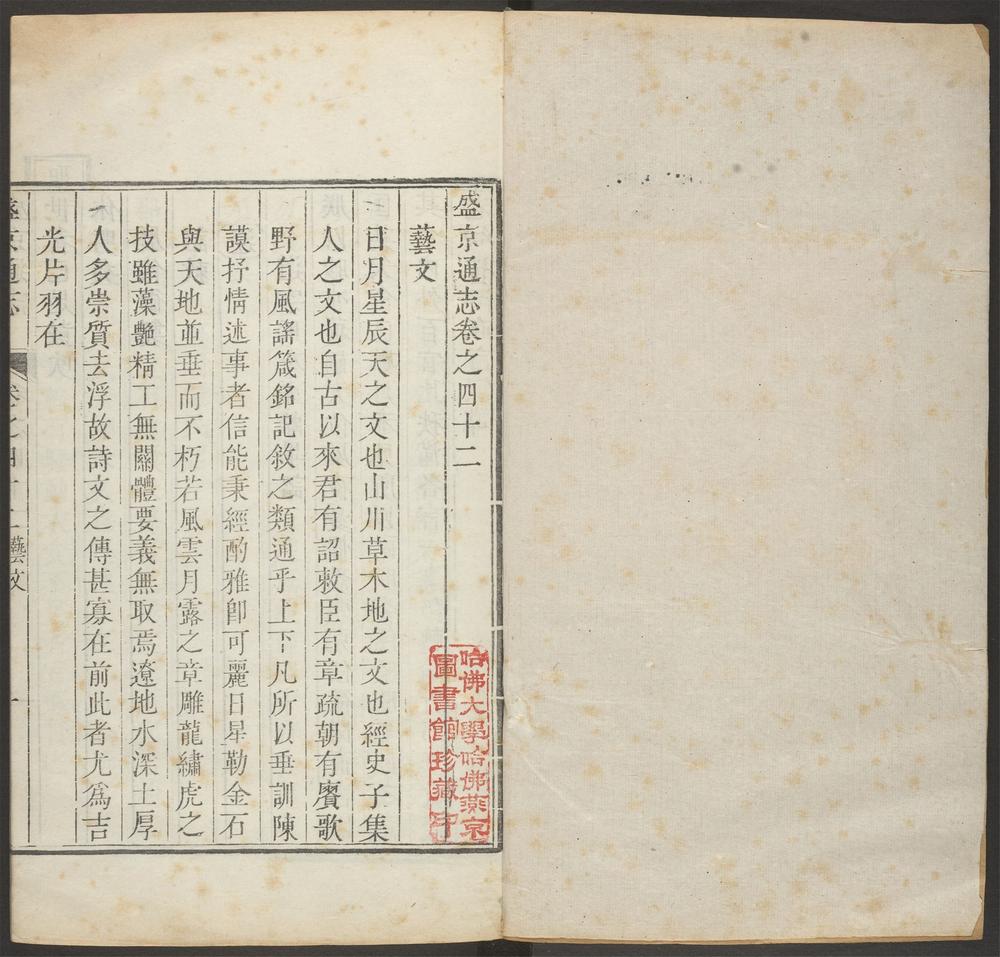 盛京通志卷之四十二
藝文
日月星辰天之文也山川草木地之文也經史子集
人之文也自古以來君有詔敕臣有章疏朝有賡歌
野有風謠箴銘記敘之類通乎上下凡所以垂訓陳
謨抒情述事者信能秉經酌雅卽可麗日星勒金石
與天地並垂而不朽若風雲月露之章雕龍繡虎之
技雖藻艷精工無關體要義無取焉遼地水深土厚
人多崇質去浮故詩文之傳甚寡在前此者尤爲吉
光片羽在
盛京通志 卷之四十二 藝文 一
哈佛大學哈佛燕京
圖書館珍藏印